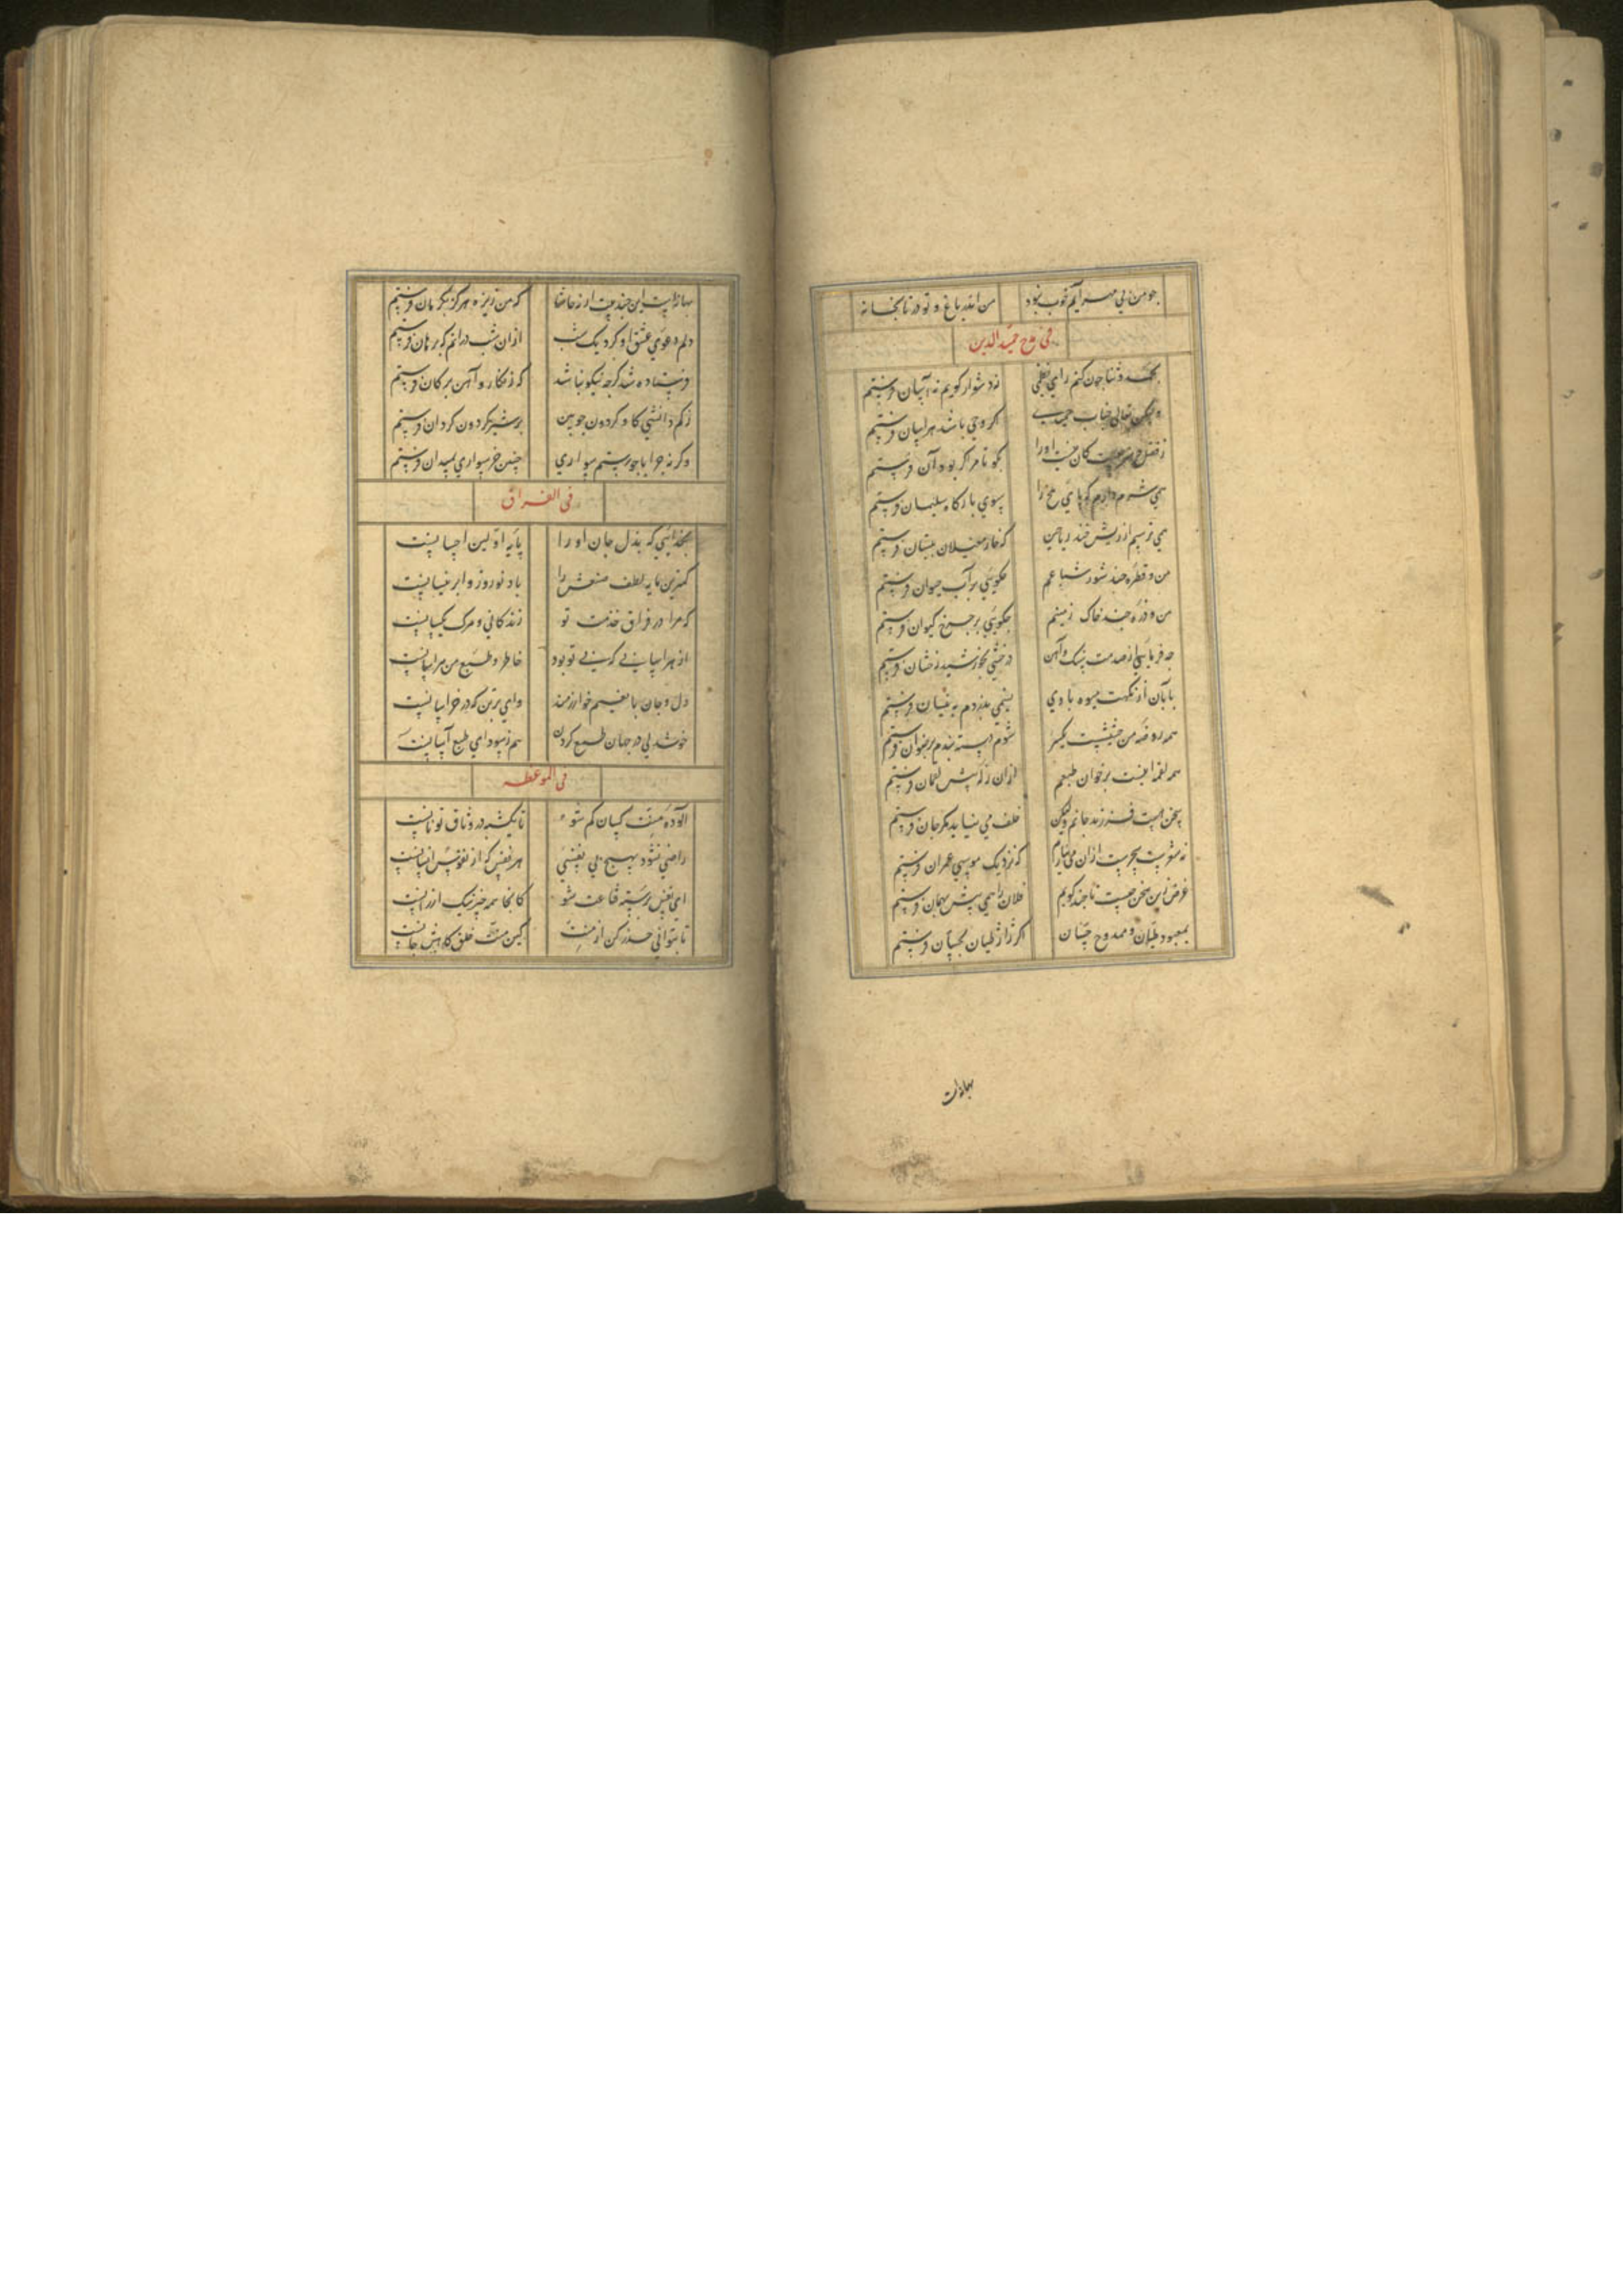 چو من بی مهر آیم خوب نبود من اندر باغ و تو در تابخانه
فی مدح حمید الدین
بجد و ثنا چون کنم رای نظمی نه دشوار گویم نه آسان فرستم
ولیکن تعالی جناب حمیدی اگر وحی باشد هراسان فرستم
ز فضل و هنر چیست کان نیست او را بگو تا مر اگر بود آن فرستم
همی شرم دارم که پای ملخ را سوی بارگاه سلیمان فرستم
همی ترسم از ریش خند ریاحین که خار مغیلان ببستان فرستم
من و قطره چند سور شباعم چگویی بر آب حیوان فرستم
من و ذره چند خاک زمینم چگویی بر چرخ کیوان فرستم
چه فرمایی از صدمت سنک و آهن درخشی بخورشید رخشان فرستم
بآبان از نکهت میوه بادی نسیمی بدزدم به نیسان فرستم
همه روضه من حشیشست یکسر شوم دسته بندم برضوان فرستم
همه لقمه نیست بر خوان طبعم ازان زله پیش لقمان فرستم
سخن هست فرزند جانم ولیکن خلف می نیاید مگر جان فرستم
نه شعرست سحرست ازان می نیارم که نزدیک موسی عمران فرستم
غرض زین سخن چیست تا چند گویم فلان را همی پیش بهمان فرستم
بمعبود طیان و ممدوح حسان اگر ژاژ طیان بحسان فرستم
بهانه است
بهانه است این چند بیت ار نه حاشا که من زیره هرگز بکرمان فرستم
دلم دعوی عشق او کرد یک شب ازان شب درانم که برهان فرستم
فرستاده شد گرچه نیکو نباشد که زنگار و آهن بر کان فرستم
ز کم دانشی گاو گردون چوبین بر شیر گردون گردان فرستم
وگر نه چرا با چو رستم سواری چنین خر سواری بمیدان فرستم
فی الفراق
بخدائی که بذل جان او را پایه اولین احسانست
کمترین مایه لطف صنعش را باد نوروز و ابر نیسانست
که مرا در فراق خدمت تو زندگانی و مرگ یکسانست
از هراسانی که بی تو بود خاطر و طبع من هراسانست
دل و جان با نعیم خوارزمند وای برتن که در خراسانست
خوشدلی در جهان طمع کردن هم ز سودای طبع آسانست
فی الموعظه
آلوده منت کسان کم شو تا یکشبه در وثاق تو نانست
راضی نشود بهیچ بی نفسی هر نفس که از نفوس انسانست
ای نفس برسته قناعت شو کانجا همه چیز نیک ارزانست
تا بتوانی حذر کن از منت کین منت خلق کاهش جانست